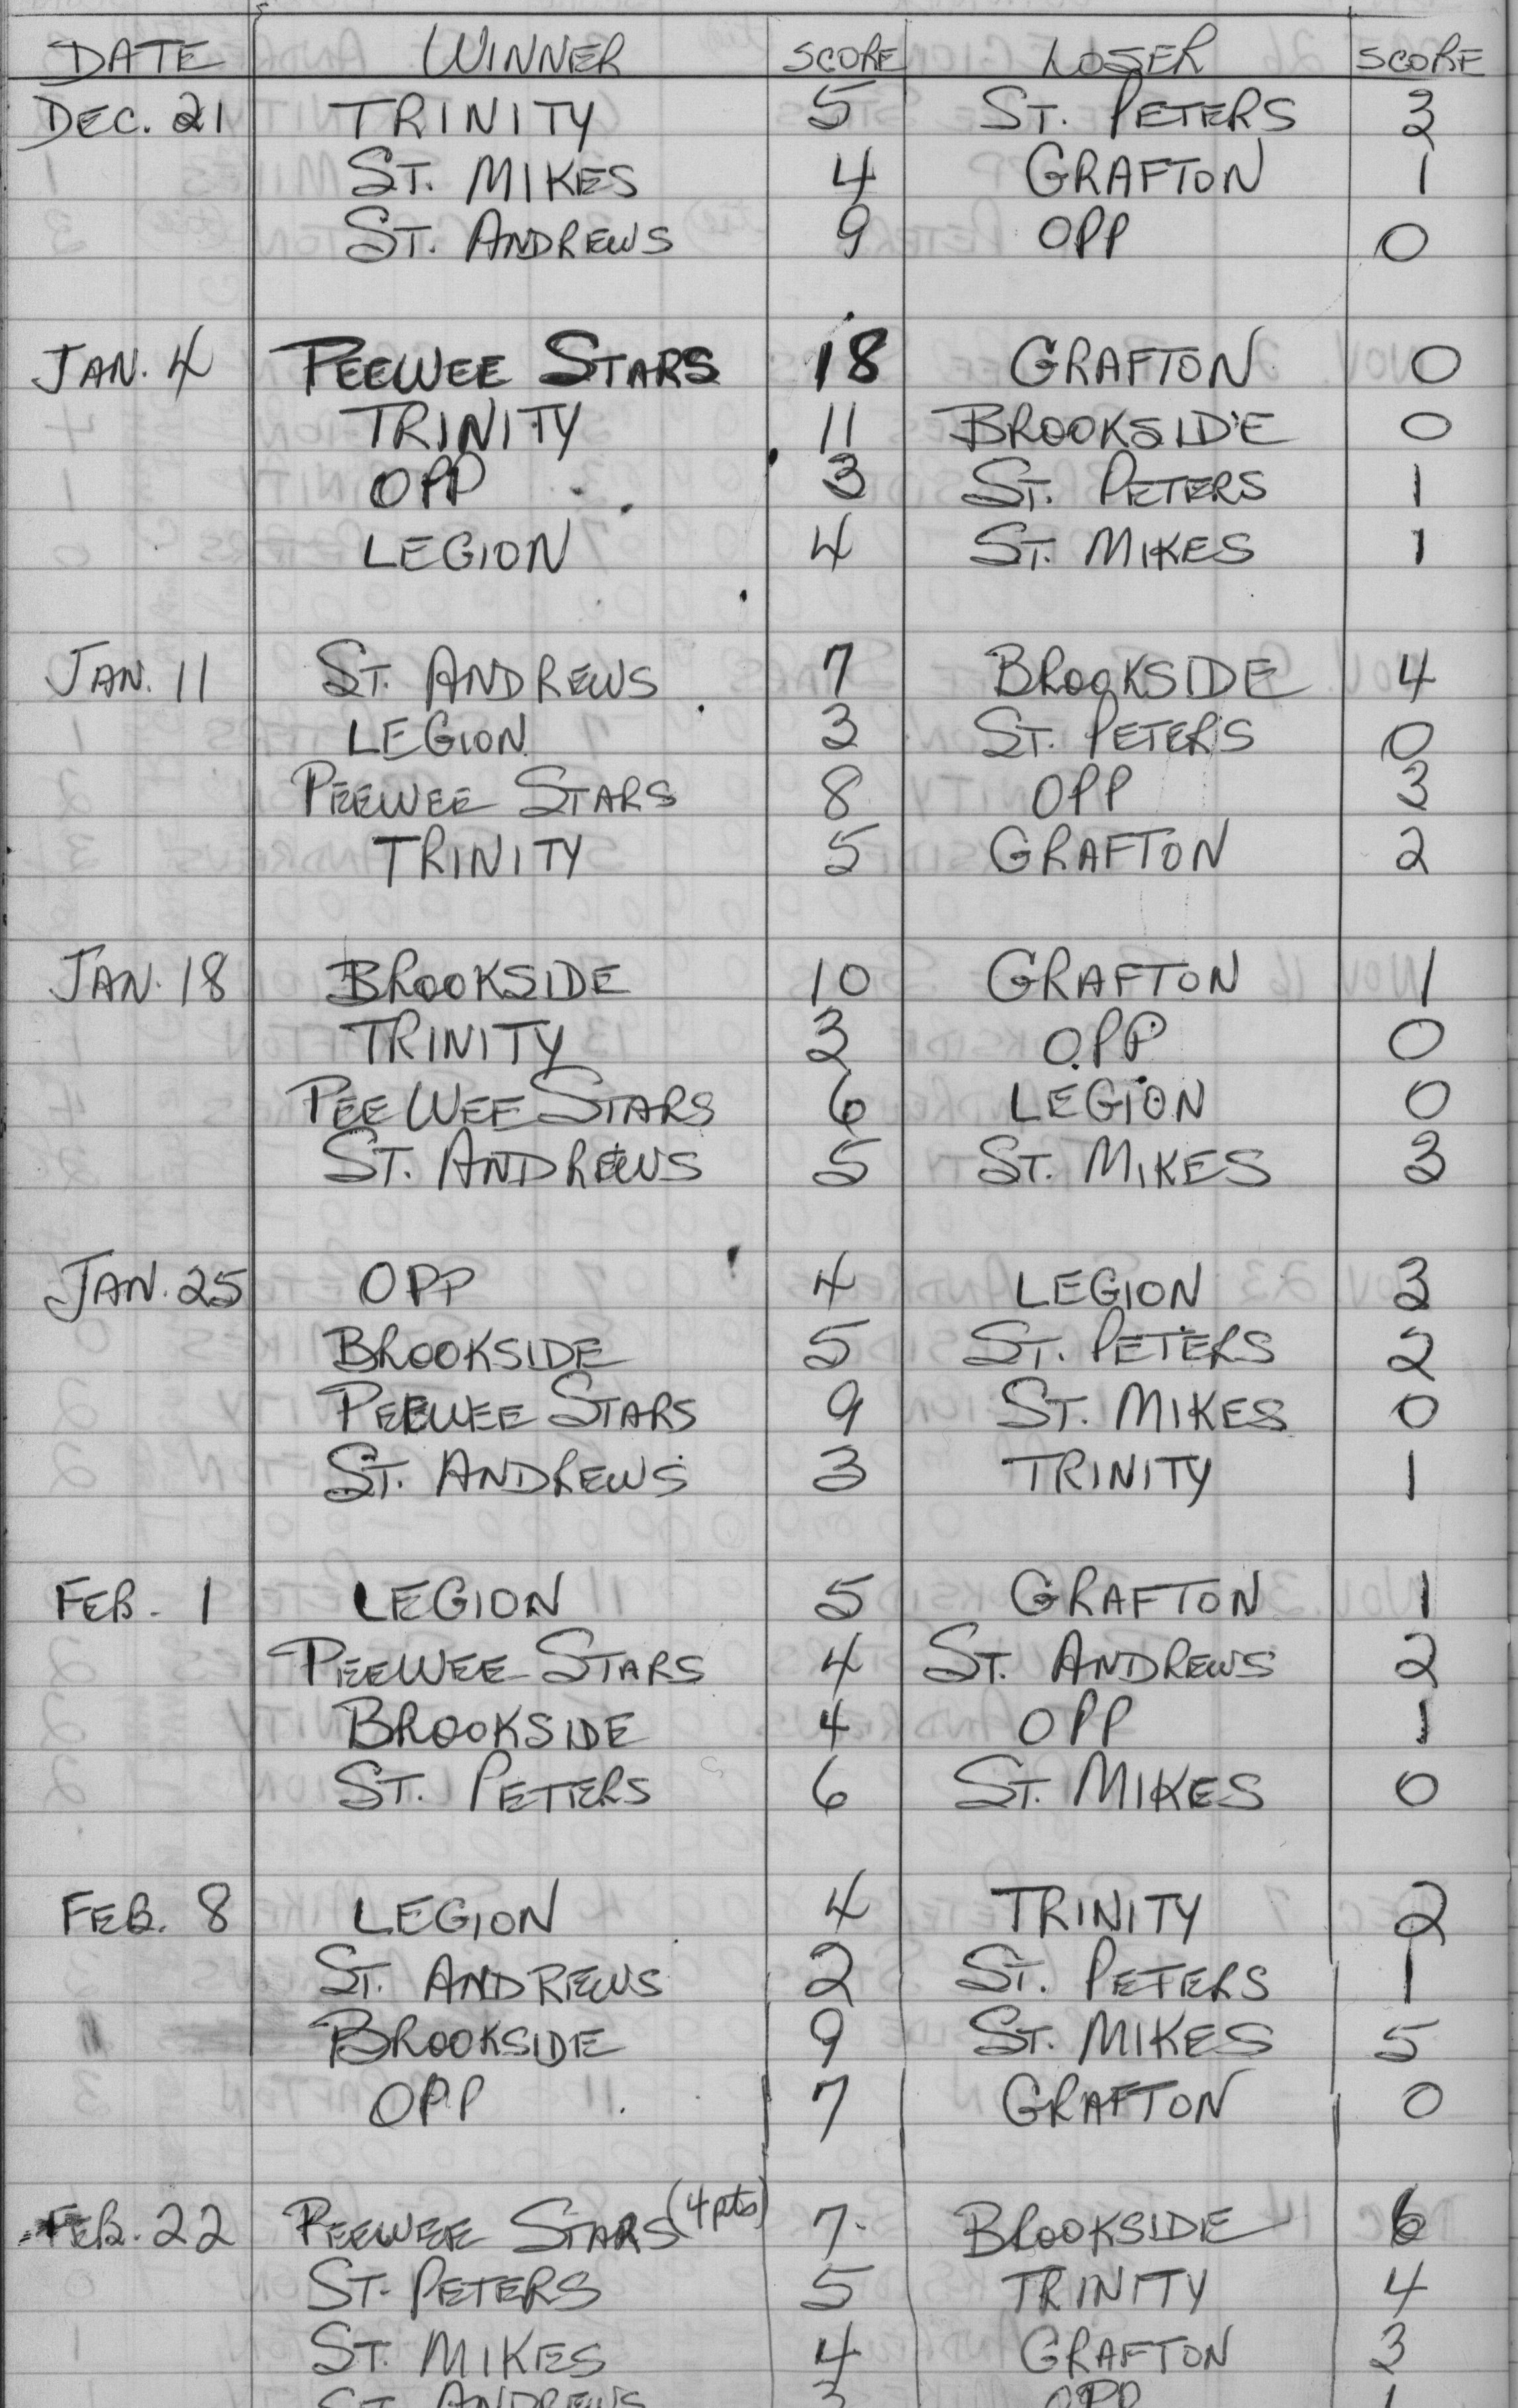 DATE WINNER SCORE LOSER SCORE
DEC. 21 TRINITY 5 ST. PETERS 3
ST. MIKES 4 GRAFTON 1
ST. ANDREWS 9 OPP 0
JAN. 4 PEEWEE STARS 18 GRAFTON 0
TRINITY 11 BROOKSIDE 0
OPP 3 ST. PETERS 1
LEGION 4 ST. MIKES 1
JAN. 11 ST. ANDREWS 7 BROOKSIDE 4
LEGION 3 ST. PETERS 0
PEEWEE STARS 8 OPP 3
TRINITY 5 GRAFTON 2
JAN. 18 BROOKSIDE 10 GRAFTON 1
TRINITY 3 OPP 0
PEEWEE STARS 6 LEGION 0
ST. ANDREWS 5 ST. MIKES 3
JAN. 25 OPP 4 LEGION 3
BROOKSIDE 5 ST. PETERS 2
PEEWEE STARS 9 ST. MIKES 0
ST. ANDREWS 3 TRINITY 1
FEB. 1 LEGION 5 GRAFTON 1
PEEWEE STARS 4 ST. ANDREWS 2
BROOKSIDE 4 OPP 1
ST. PETERS 6 ST. MIKES 0
FEB. 8 LEGION 4 TRINITY 2
ST. ANDREWS 2 ST. PETERS 1
BROOKSIDE 9 ST. MIKES 5
OPP 7 GRAFTON 0
FEB. 22 PEEWEE STARS (4pts) 7 BROOKSIDE 6
ST. PETERS 5 TRINITY 4
ST. MIKES 4 GRAFTON 3
ST. ANDREWS 3 OPP 1